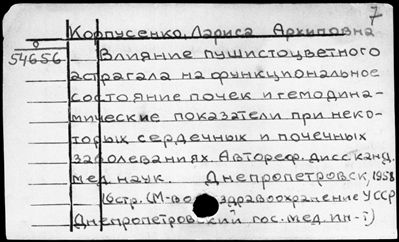 7
Корпусенко, Лариса Архиповна
54656
Влияние пушистоцветного
астрагала на функциональное
состояние почек и гемодина-
мические показатели при неко-
торых сердечных и почечных
заболеваниях. Автореф. дисс. канд.
мед. наук. Днепропетровск, 1958
16 стр. (М-во здравоохранение УССР
Днепропетровский гос. мед. ин-т)